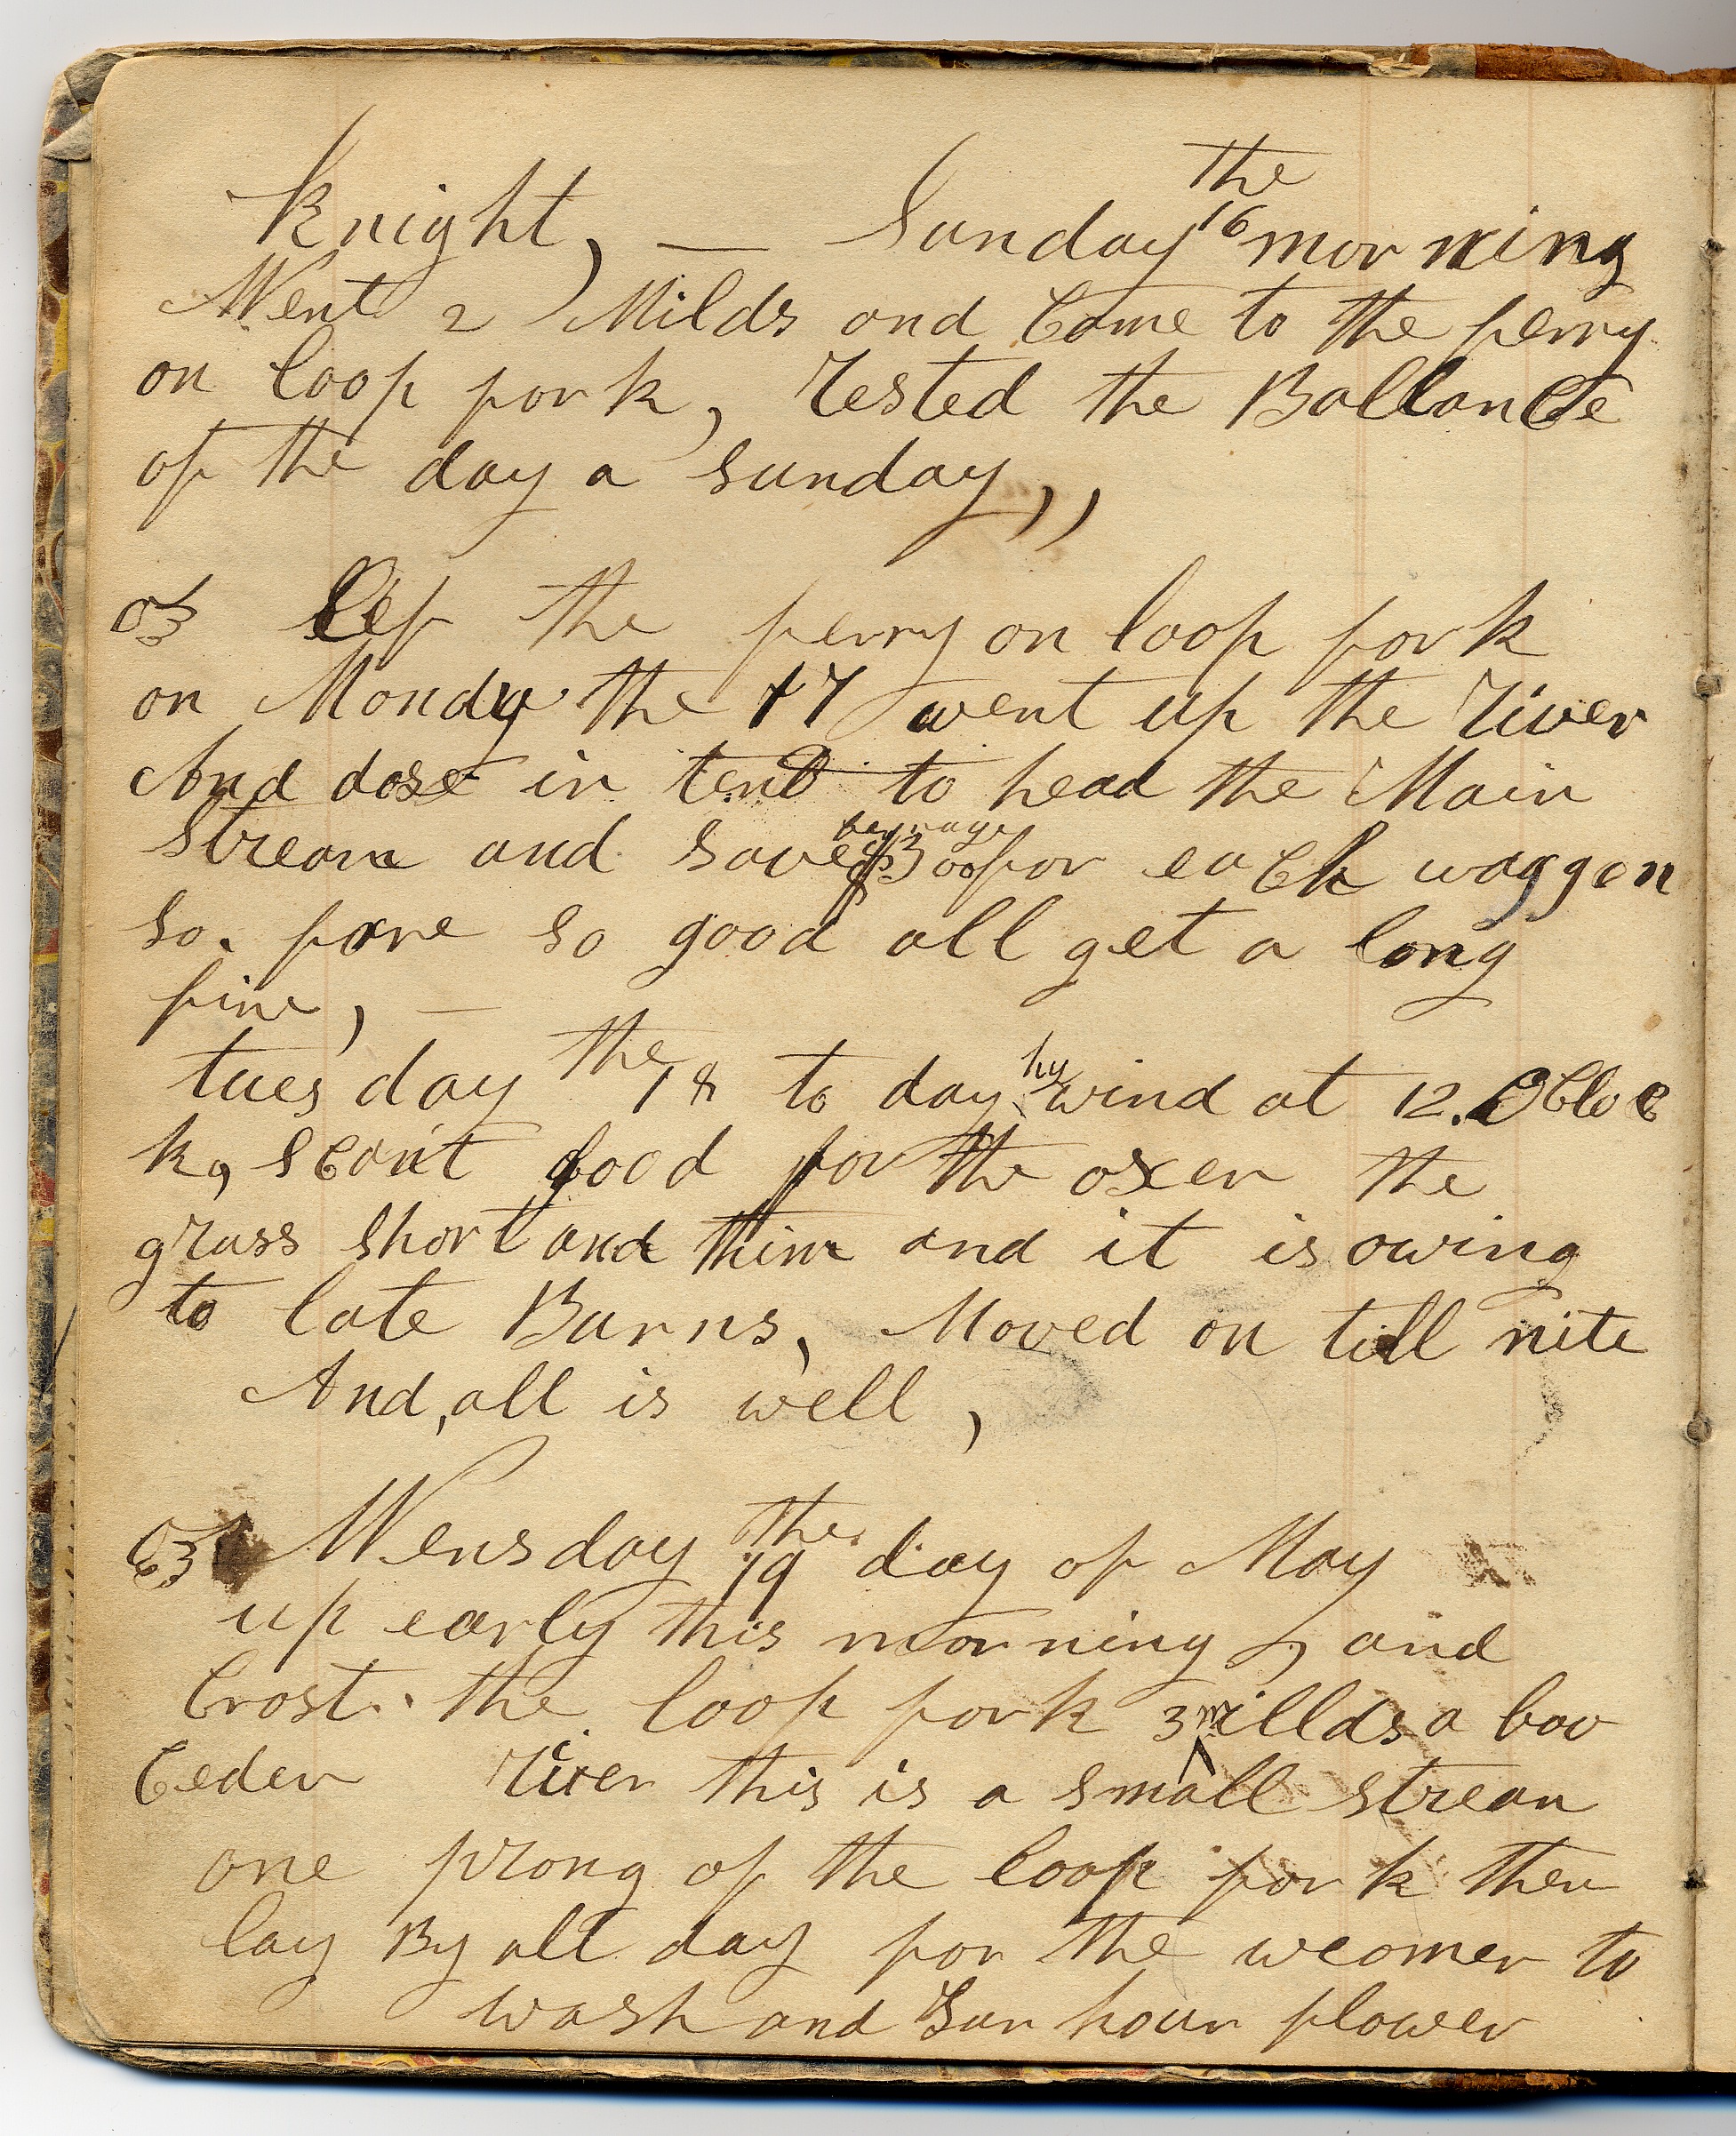 the
Knight, — Sunday 16 morning
Went 2 Milds and Come to the ferry
on loop fork, Rested the Ballance
of the day a sunday,,
Lef the ferry on loop fork
on Monday the 17 went up the River
And dose in tend to head the Main
feryage
Stream and save $3 00 for each waggon
so. fare so good all get a long
fine, —
tuesday the 18 to day hy wind at 12. OCloc
k, scant food for the oxen the
grass short and thin and it is owing
to late Burns, Moved on till nite
And, all is well,
Wensday the 19 day of May
up early this morning, and
Crost. the loop fork 3 millds a bov
Ceder River this is a small stream
one prong of the loop fork then
lay By all day for the weomen to
wash and Sun hour flower